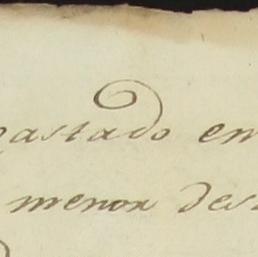 gastado en
menor des